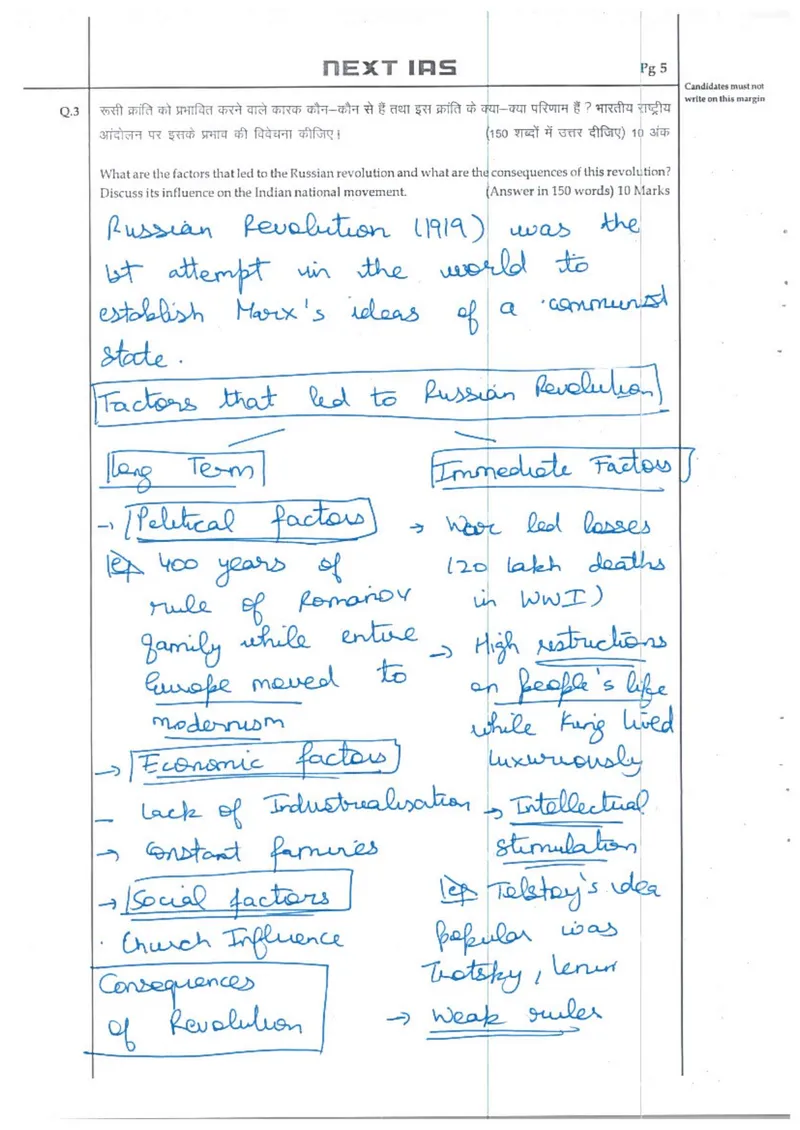 NEXT IAS
Pg 5
Candidates must not
write on this margin
Q.3 रूसी क्रांति को प्रभावित करने वाले कारक कौन-कौन से हैं तथा इस क्रांति के क्या-क्या परिणाम हैं ? भारतीय राष्ट्रीय
आंदोलन पर इसके प्रभाव की विवेचना कीजिए। (150 शब्दों में उत्तर दीजिए) 10 अंक
What are the factors that led to the Russian revolution and what are the consequences of this revolution?
Discuss its influence on the Indian national movement. (Answer in 150 words) 10 Marks
Russian Revolution (1919) was the
1st attempt in the world to
establish Marx's ideas of a communist
state.
Factors that led to Russian Revolution
Long Term
→ Political factors
400 years of
rule of Romanov
family while entire
Europe moved to
modernism
→ Economic factors
– Lack of Industrialisation
→ Constant famines
→ Social factors
· Church Influence
Immediate Factors
→ War led losses
(20 lakh deaths
in WWI)
→ High restructions
on people's life
while King lived
luxuriously
→ Intellectual
stimulation
Tolstoy's idea
popular was
Trotsky, Lenin
→ Weak rules
Consequences
of Revolution